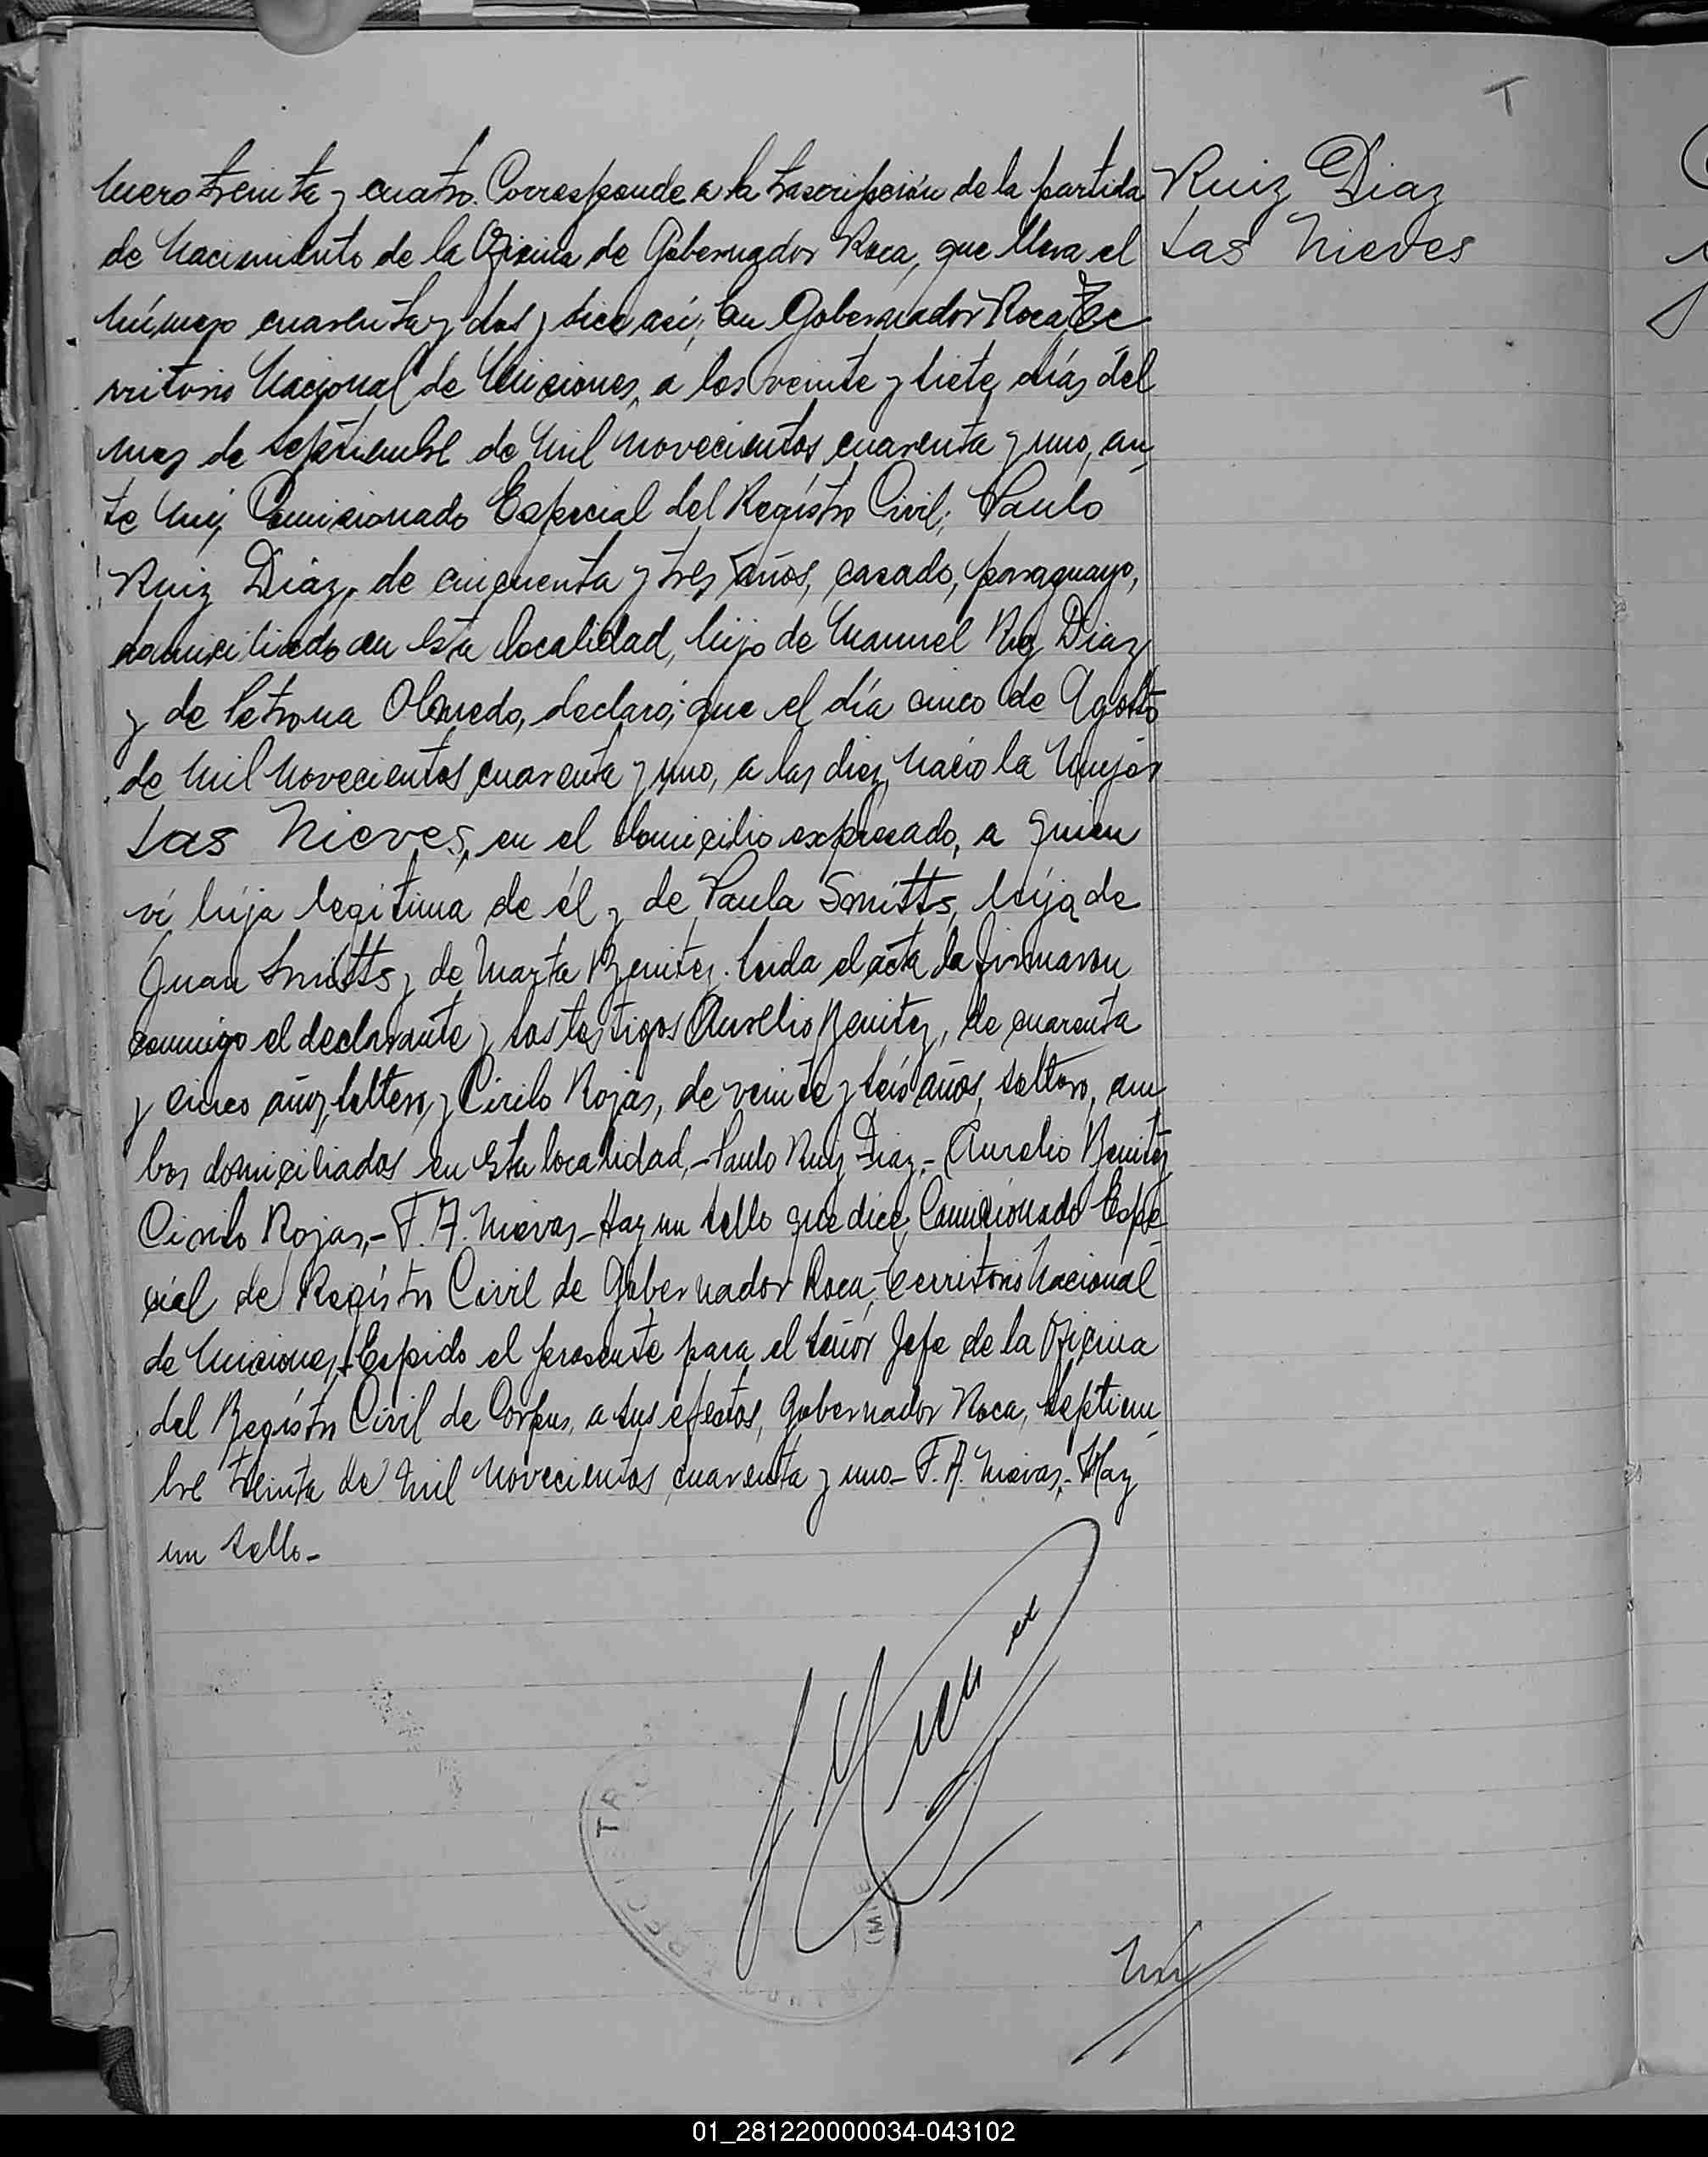 T
Ruiz Diaz
Las Nieves
mero treinta y cuatro. Corresponde a la trascripsión de la partida
de Nacimiento de la Oficina de Gobernador Roca, que lleva el
número cuarenta y dos y dice así; En Gobernador Roca, Te
rritorio Nacional de Misiones, a los veinte y siete días del
mes de septiembre de mil novecientos cuarenta y uno, an-
te mí, Comisionado Especial del Registro Civil; Paulo
Ruiz Diaz, de cincuenta y tres años, casado, paraguayo,
domiciliado en esta localidad, hijo de Manuel Ruiz Diaz
y de Petrona Olmedo, declaró; que el día cinco de Agosto
de mil novecientos cuarenta y uno, a las diez, nació la mujer
Las Nieves, en el domicilio expresado, a quien
ví, hija legítima de él y de Paula Smitts, hija de
Juan Smitts y de Marta Benitez. Leida el acta la firmaron
conmigo el declarante y los testigos Aurelio Benitez, de cuarenta
y cinco años, soltero, y Cirilo Rojas, de veinte y seis años, soltero, am
bos domiciliados en esta localidad,- Paulo Ruiz Diaz,- Aurelio Benitez
Cirilo Rojas,- F. A. Nievas,- Hay un sello que dice, Comisionado Espe-
cial de Registro Civil de Gobernador Roca, Territorio Nacional
de Misiones, Expido el presente para el señor Jefe de la Oficina
del Registro Civil de Corpus, a sus efectos, Gobernador Roca, septiem-
bre treinta de mil novecientos cuarenta y uno- F. A. Nievas,- Hay
un sello-
01_281220000034-043102